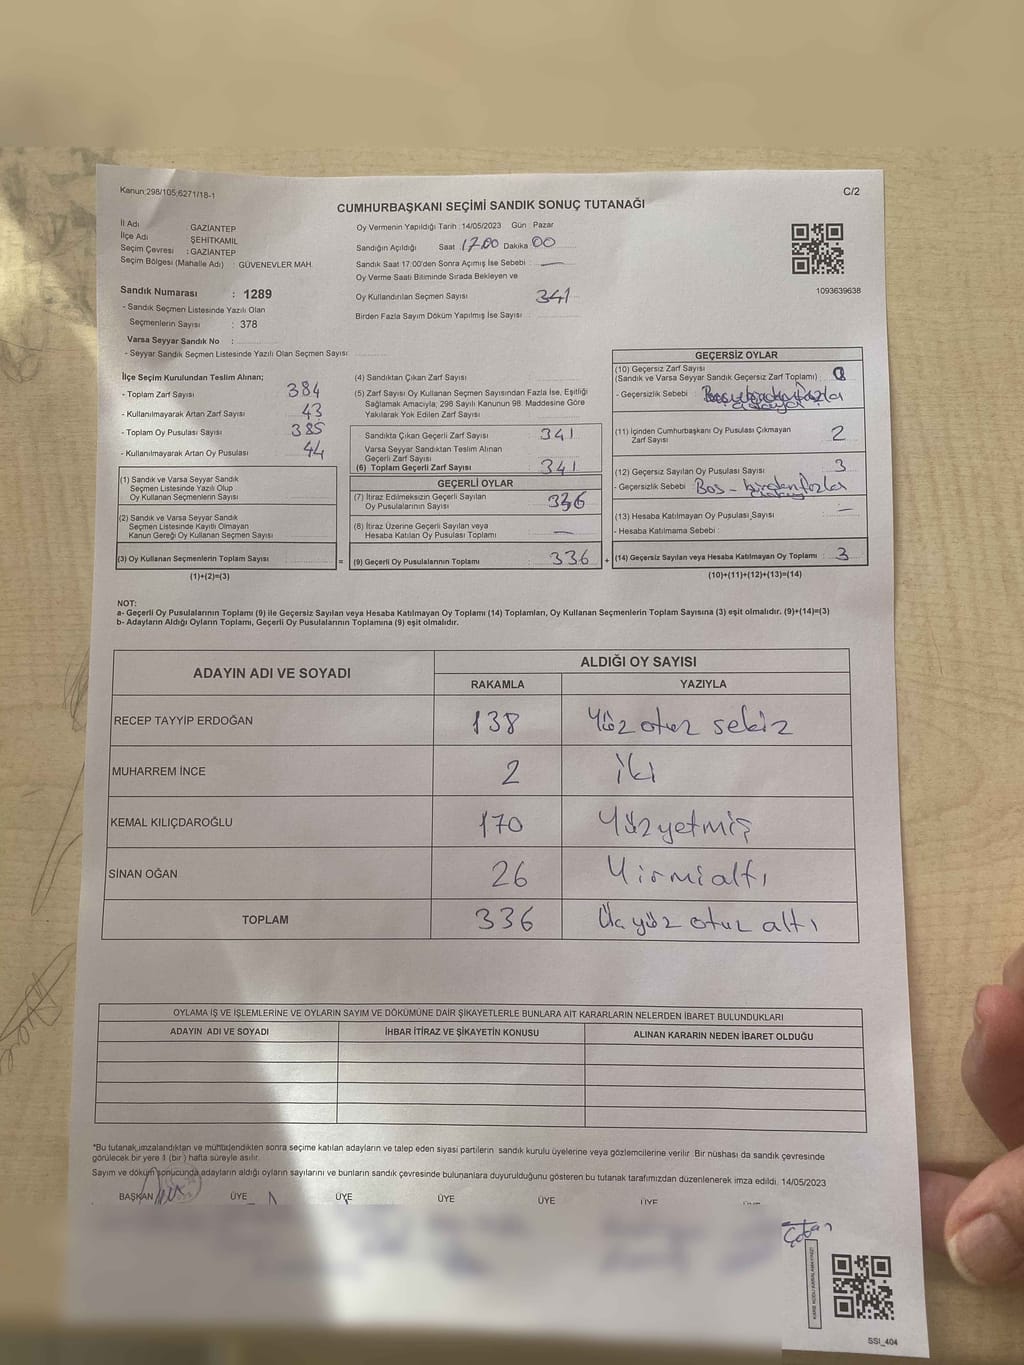 Kanun:298/105,6271/18-1
C/2
CUMHURBAŞKANI SEÇİMİ SANDIK SONUÇ TUTANAĞI
İl Adı : GAZİANTEP
İlçe Adı ŞEHİTKAMİL
Seçim Çevresi : GAZİANTEP
Seçim Bölgesi (Mahalle Adı) : GÜVENEVLER MAH.
Sandık Numarası : 1289
- Sandık Seçmen Listesinde Yazılı Olan
Seçmenlerin Sayısı : 378
Varsa Seyyar Sandık No :
- Seyyar Sandık Seçmen Listesinde Yazılı Olan Seçmen Sayısı:
Oy Vermenin Yapıldığı Tarih :14/05/2023 Gün : Pazar
Sandığın Açıldığı Saat 17.00 Dakika 00
Sandık Saat 17:00'den Sonra Açımış İse Sebebi : —
Oy Verme Saati Bitiminde Sırada Bekleyen ve
Oy Kullandırılan Seçmen Sayısı 341
Birden Fazla Sayım Döküm Yapılmış İse Sayısı :
1093639638
İlçe Seçim Kurulundan Teslim Alınan;
- Toplam Zarf Sayısı : 384
- Kullanılmayarak Artan Zarf Sayısı : 43
- Toplam Oy Pusulası Sayısı : 385
- Kullanılmayarak Artan Oy Pusulası : 44
(1) Sandık ve Varsa Seyyar Sandık
Seçmen Listesinde Yazılı Olup
Oy Kullanan Seçmenlerin Sayısı
(2) Sandık ve Varsa Seyyar Sandık
Seçmen Listesinde Kayıtlı Olmayan
Kanun Gereği Oy Kullanan Seçmen Sayısı
(3) Oy Kullanan Seçmenlerin Toplam Sayısı
(1)+(2)=(3)
=
(4) Sandıktan Çıkan Zarf Sayısı :
(5) Zarf Sayısı Oy Kullanan Seçmen Sayısından Fazla İse, Eşitliği
Sağlamak Amacıyla, 298 Sayılı Kanunun 98. Maddesine Göre
Yakılarak Yok Edilen Zarf Sayısı :
Sandıkta Çıkan Geçerli Zarf Sayısı : 341
Varsa Seyyar Sandıktan Teslim Alınan
Geçerli Zarf Sayısı :
(6) Toplam Geçerli Zarf Sayısı : 341
GEÇERLİ OYLAR
(7) İtiraz Edilmeksizin Geçerli Sayılan
Oy Pusulalarının Sayısı : 336
(8) İtiraz Üzerine Geçerli Sayılan veya
Hesaba Katılan Oy Pusulası Toplamı : —
(9) Geçerli Oy Pusulalarının Toplamı : 336
+
GEÇERSİZ OYLAR
(10) Geçersiz Zarf Sayısı
(Sandık ve Varsa Seyyar Sandık Geçersiz Zarf Toplamı) :
- Geçersizlik Sebebi :
(11) İçinden Cumhurbaşkanı Oy Pusulası Çıkmayan
Zarf Sayısı : 2
(12) Geçersiz Sayılan Oy Pusulası Sayısı : 3
- Geçersizlik Sebebi : Bos - birden fazla
(13) Hesaba Katılmayan Oy Pusulası Sayısı : —
- Hesaba Katılmama Sebebi :
(14) Geçersiz Sayılan veya Hesaba Katılmayan Oy Toplamı : 3
(10)+(11)+(12)+(13)=(14)
NOT:
a- Geçerli Oy Pusulalarının Toplamı (9) ile Geçersiz Sayılan veya Hesaba Katılmayan Oy Toplamı (14) Toplamları, Oy Kullanan Seçmenlerin Toplam Sayısına (3) eşit olmalıdır. (9)+(14)=(3)
b- Adayların Aldığı Oyların Toplamı, Geçerli Oy Pusulalarının Toplamına (9) eşit olmalıdır.
ADAYIN ADI VE SOYADI
ALDIĞI OY SAYISI
RAKAMLA YAZIYLA
RECEP TAYYİP ERDOĞAN 138 Yüz otuz sekiz
MUHARREM İNCE 2 iki
KEMAL KILIÇDAROĞLU 170 Yüzyetmiş
SİNAN OĞAN 26 Yirmialtı
TOPLAM 336 Üçyüz otuz altı
OYLAMA İŞ VE İŞLEMLERİNE VE OYLARIN SAYIM VE DÖKÜMÜNE DAİR ŞİKAYETLERLE BUNLARA AİT KARARLARIN NELERDEN İBARET BULUNDUKLARI
ADAYIN ADI VE SOYADI İHBAR İTİRAZ VE ŞİKAYETİN KONUSU ALINAN KARARIN NEDEN İBARET OLDUĞU
*Bu tutanak,imzalandıktan ve mühürlendikten sonra seçime katılan adayların ve talep eden siyasi partilerin sandık kurulu üyelerine veya gözlemcilerine verilir. Bir nüshası da sandık çevresinde
görülecek bir yere 1 (bir ) hafta süreyle asılır.
Sayım ve döküm sonucunda adayların aldığı oyların sayılarını ve bunların sandık çevresinde bulunanlara duyurulduğunu gösteren bu tutanak tarafımızdan düzenlenerek imza edildi. 14/05/2023
BAŞKAN ÜYE ÜYE ÜYE ÜYE ÜYE
SSI_404